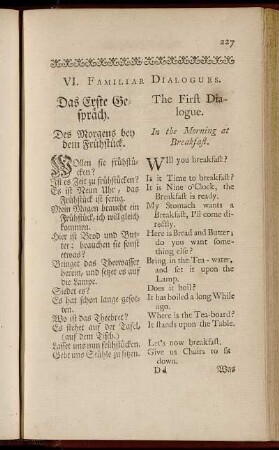 227
VI. FAMILIAR DIALOGUES.
Das Erste Ge-
spräch.
Des Morgens bey
dem Frühstück.
Wollen sie frühstü-
cken?
Ist es Zeit zu frühstücken?
Es ist Neun Uhr, das
Frühstück ist fertig.
Mein Magen braucht ein
Frühstück, ich will gleich
kommen.
Hier ist Brod und But-
ter; brauchen sie sonst
etwas?
Bringet das Theewasser
herein, und setzet es auf
die Lampe.
Siedet es?
Es hat schon lange gesot-
ten.
Wo ist das Theebret?
Es stehet auf der Tafel,
(auf dem Tisch.)
Lasset uns nun frühstücken.
Gebt uns Stühle zu sitzen.
The First Dia-
logue.
In the Morning at
Breakfast.
Will you breakfast?
Is it Time to breakfast?
It is Nine o'Clock, the
Breakfast is ready.
My Stomach wants a
Breakfast, I'll come di-
rectly.
Here is Bread and Butter;
do you want some-
thing else?
Bring in the Tea-water,
and set it upon the
Lamp.
Does it boil?
It has boiled a long While
ago.
Where is the Tea-board?
It stands upon the Table.
Let's now breakfast.
Give us Chairs to sit
down.
Dd
Was